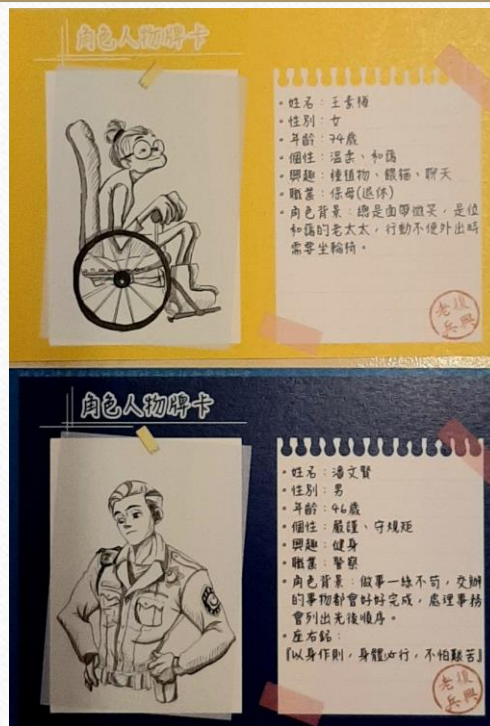 角色人物牌卡
・姓名：王素梅
・性別：女
・年齡：74歲
・個性：溫柔、和藹
・興趣：種植物、餵貓、聊天
・職業：保母(退休)
・角色背景：總是面帶微笑，是位
和藹的老太太，行動不便外出時
需要坐輪椅。
老復
兵興
角色人物牌卡
・姓名：潘文賢
・性別：男
・年齡：46歲
・個性：嚴謹、守規矩
・興趣：健身
・職業：警察
・角色背景：做事一絲不苟，交辦
的事物都會好好完成，處理事務
會列出先後順序。
・座右銘：
『以身作則，身體必行，不怕艱苦』
老復
兵興